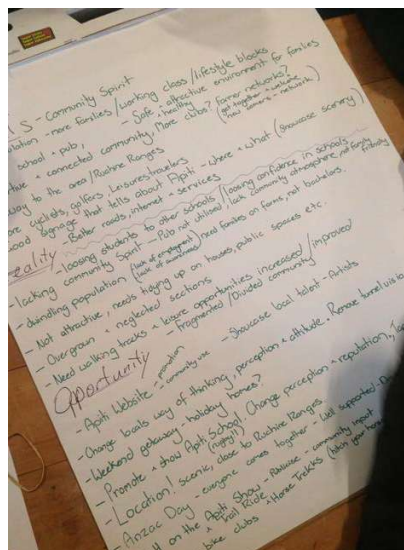 - Community Spirit
- more families / working class / lifestyle blocks
school + pub, - Safe + attractive environment for families
+ healthy
+ connected community, More clubs? Farmer networks?
(get together + welcome
new comers - network)
way to the area / Ruahine Ranges
cyclists, golfers, leisure travellers
good signage that tells about Apiti - where + what (showcase scenery)
- Better roads, internet + services
eality - loosing students to other schools / loosing confidence in schools
- lacking community Spirit - Pub not utilised / lack community atmosphere, not family friendly
- dwindling population (lack of employment) need families on farms, not bachelors.
(lack of awareness)
- Not attractive, needs tidying up on houses, public spaces etc.
- Overgrown + neglected sections
- Need walking tracks + leisure opportunities increased / improved
- fragmented / Divided community
Opportunity
- Apiti Website - promotion
- community use
- Showcase local talent - Artists
- Change locals way of thinking, perception + attitude. Remove tunnel vis
- Weekend getaway - holiday homes?
- Promote + show Apiti School! Change perception + reputation,
(rugby!!)
- Location! scenic, close to Ruahine Ranges
- Anzac Day - everyone comes together - Well supported -
on the Apiti Show - - community input
+ Trail Ride
bike clubs + Horse Trekks